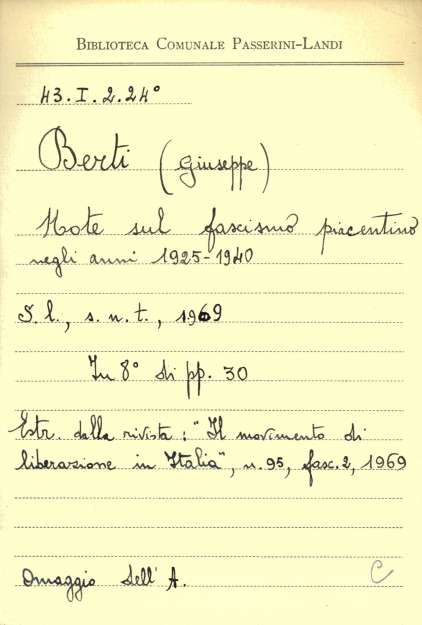 BIBLIOTECA COMUNALE PASSERINI-LANDI
43.I.2.24°
Berti (Giuseppe)
Note sul fascismo piacentino
negli anni 1925-1940
S.l., s.n.t., 1969
In 8° di pp. 30
Estr. dalla rivista: "Il movimento di
liberazione in Italia", n. 95, fasc. 2, 1969
Omaggio dell'A.
C